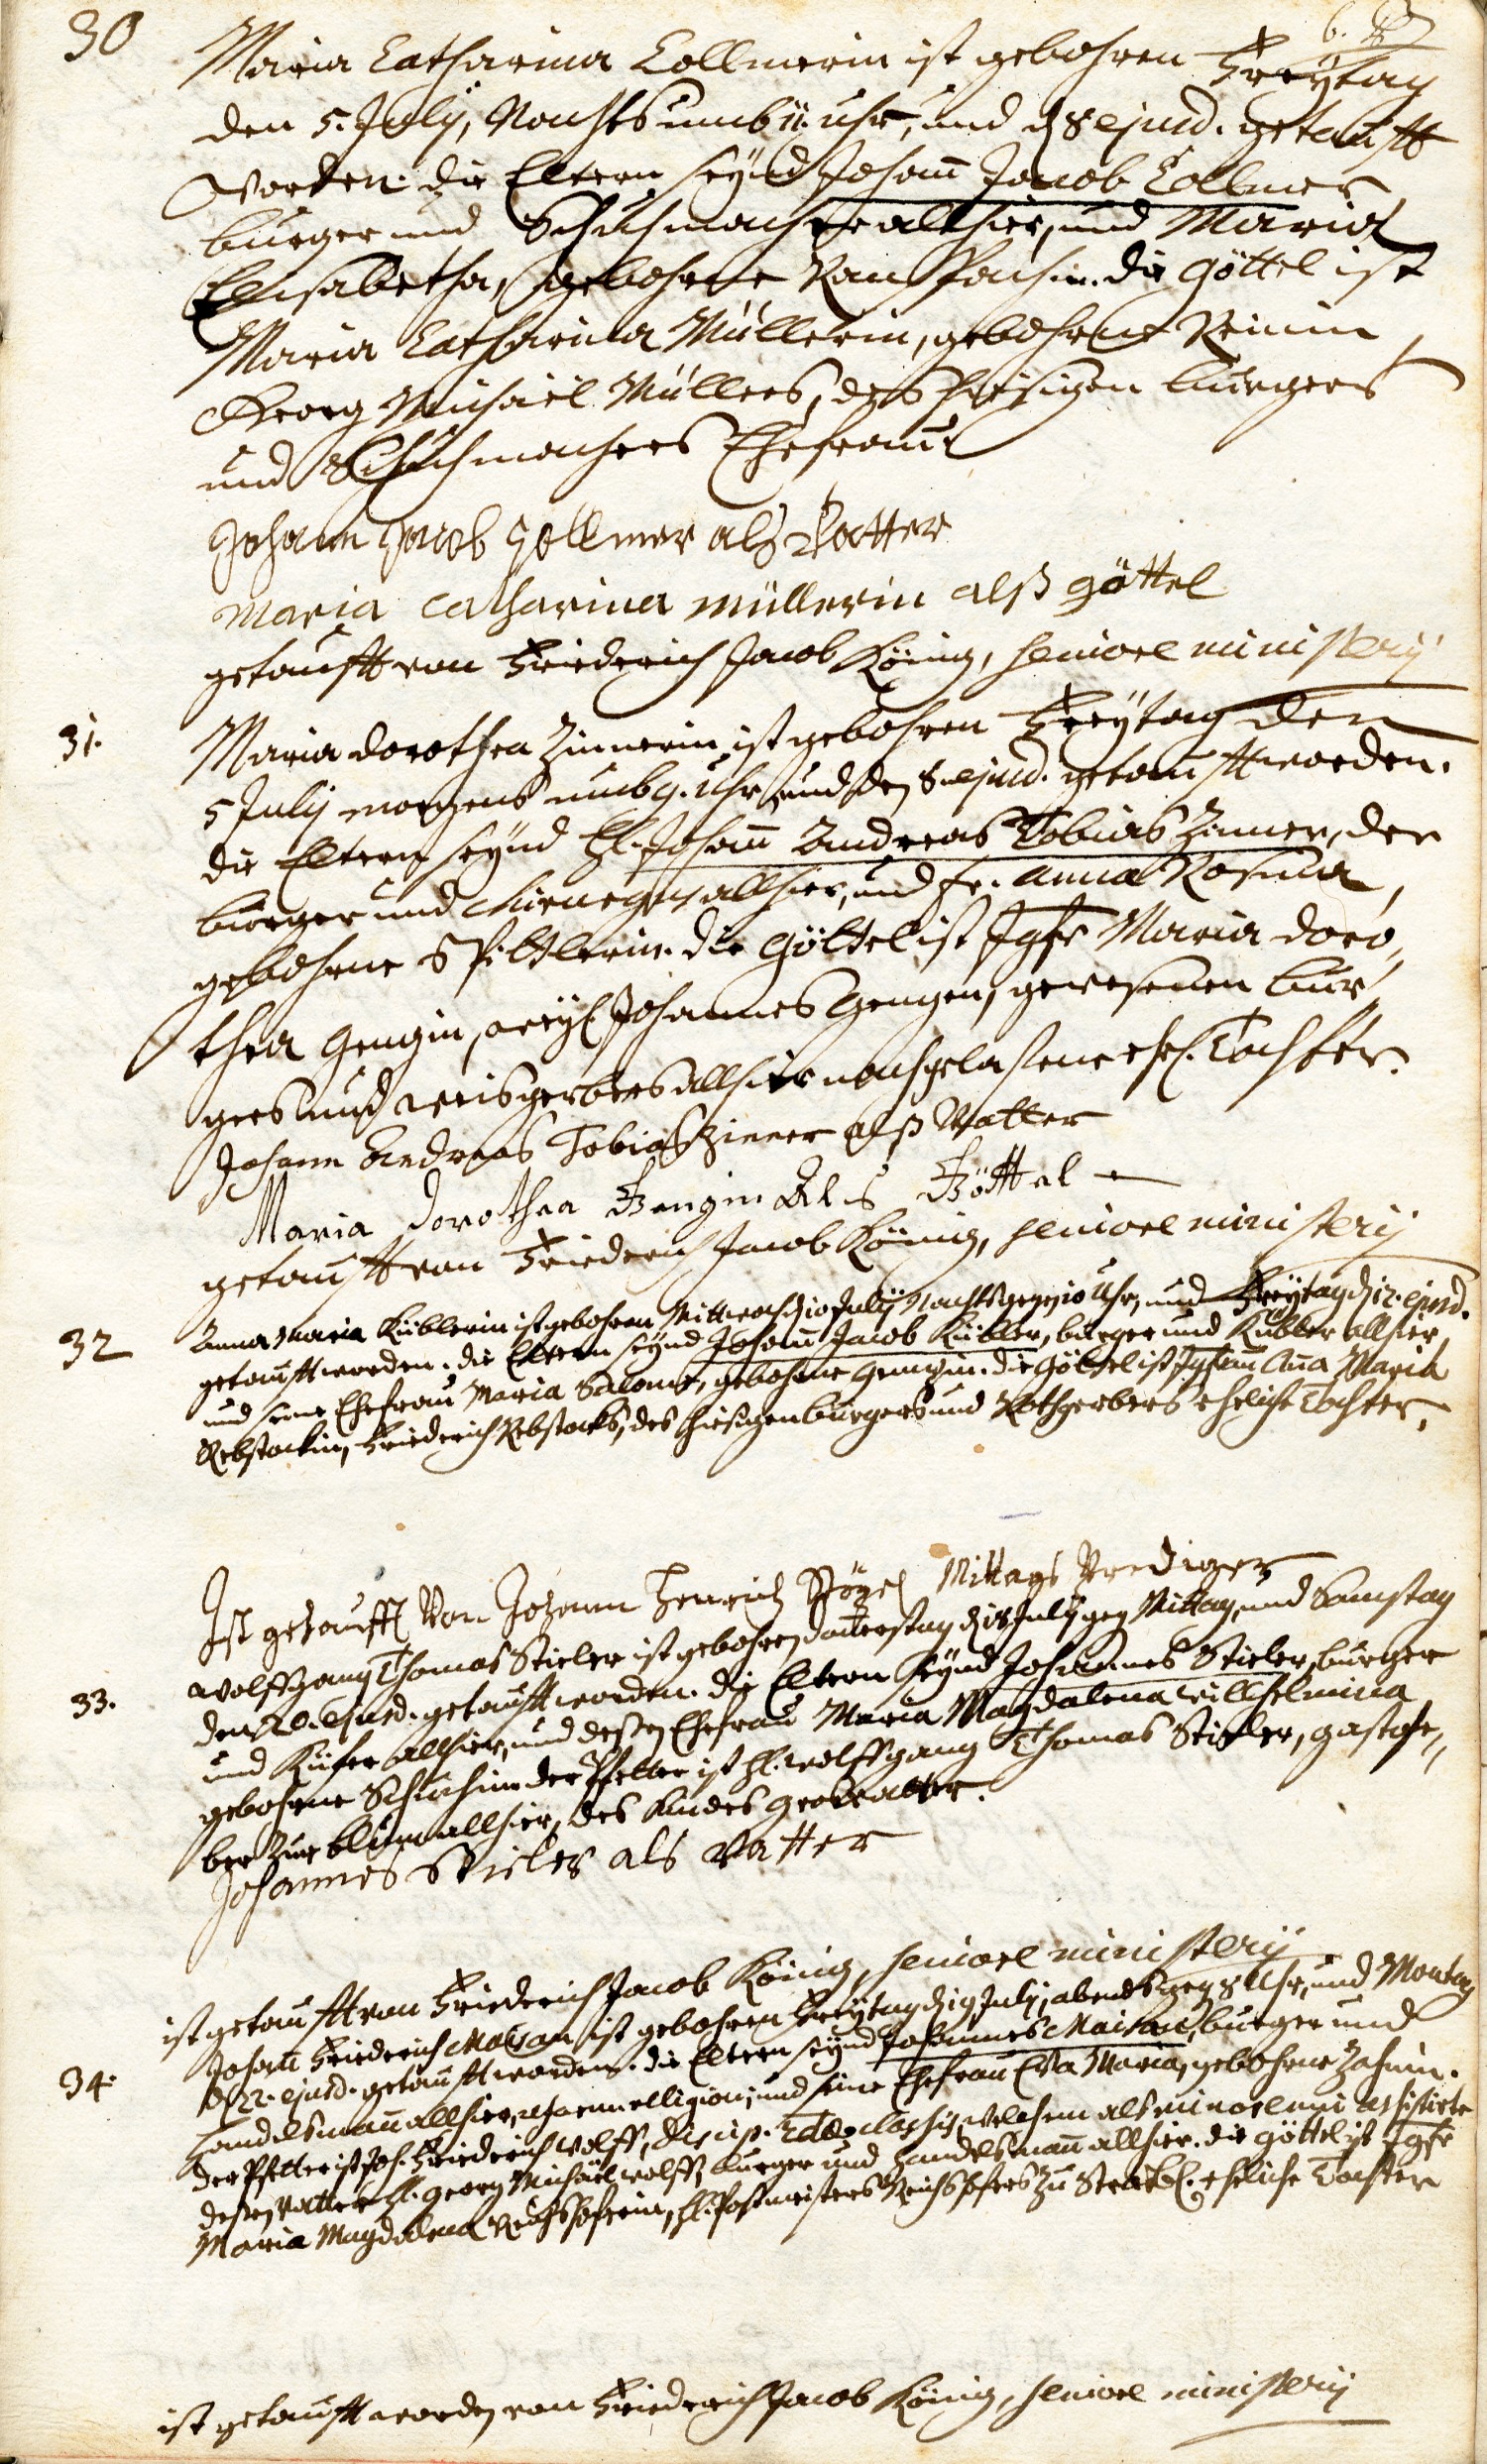 30
Maria Catharina Collmerin ist gebohren Freÿtag
den 5. Julÿ, Nachts umb 11. uhr, und d 8 ejusd. getaufft
worden. die Eltern seÿnd Johann Jacob Collmer,
burger und Schuhmacher allhier, und Maria
Elisabetha, gebohrne die Göttel ist
Maria Catharina Müllerin, gebohrne
Georg Michaël Müllers, des hiesigen burgers
und Schuhmachers Ehefrau
Johann Jacob Collmer als Vatter
Maria Catharina müllerin alß göttel
getaufft von Friederich Jacob König, seniore ministerij
31. Maria Dorothea Zinnerin ist gebohren Freÿtag den
5 Julÿ morgens umb 9. Uhr, und den 8. ejusd. getaufft worden.
die Eltern seynd H. Johann Andreas Tobias Zinner, der
burger und chirurgus allhier, und fr. Anna Rosina,
gebohrne Spiltlerin. die Göttel ist Jgfr Maria Doro-
thea Gengin, weÿl. Johannes Gengen, gewesenen bur-
gers und weisgerbers allhier nachgelaßene ehel. Tochter.
Johann Andreas Tobias Zinner alß Vatter
Maria Dorothea Gengin Als Göttel
getaufft von Friederich Jacob König, seniore ministerij
32 Anna Maria Küblerin ist gebohren Mittwoch d 10 Julÿ Nachts gegen 10 Uhr, und Freÿtag d 12. ejusd.
getaufft worden. die Eltern seynd Johann Jacob Kübler, burger und Kübler allhier,
und seine Ehefrau Maria Salome, gebohrne Gengin. die Göttel ist Jgfrau Anna Maria
Rebstockin, Friederich Rebstocks, des hiesigen burgers und Rothgerbers eheliche Tochter.
Ist getaufft Von Johann Henrich Mittags Prediger
33. Wolffgang Thomas Stieler ist gebohren Donnerstag d 18 Julÿ geg Mittag, und Samstag
den 20. ejusd. getaufft worden. die Eltern seynd Johannes Stieler, burger
und Küfer allhier, und deßen Ehefrau Maria Magdalena Willhelmina
gebohrne Schuchin. der Pfetter ist H. Wolffgang Thomas Stieler, gastge-
ber zur blum allhier, des Kindes Grosvatter.
Johannes Stieler als Vatter
ist getaufft von Friederich Jacob König, seniore ministerij
34. Johann Friederich Maison ist gebohren Freÿtag d 19 Julÿ, abends geg 8 Uhr, und Montag
d 22. ejusd. getaufft worden. die Eltern seynd Johannes Maison, burger und
Handelsmann allhier, reform. religion, und seine Ehefrau Eva Maria, gebohrne Zahnin.
der Pfetter ist Joh. Friederich Wolff, discip. 2dae classis, welchem als minorenni assistirte
deßen Vatter H. Georg Michaël Wolff, burger und Handelsmann allhier. die göttel ist Jgfr
Maria Magdalena Reichshoferin, H. Postmeisters Reichshofers zu Strasb. eheliche Tochter
ist getaufft worden von Friederich Jacob König, seniore ministerij